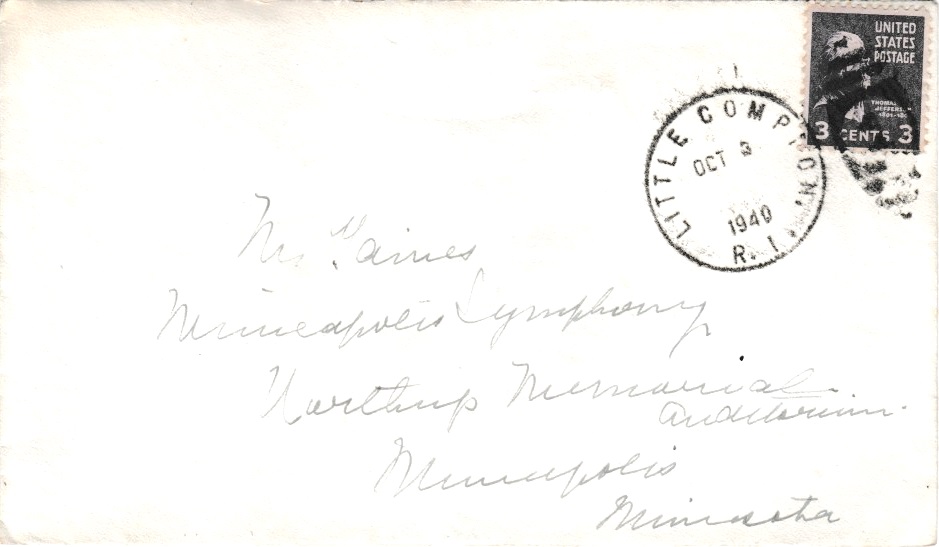 UNITED
STATES
POSTAGE
THOMAS
3 CENTS 3
LITTLE COMPTON,
OCT 3
1940
R. I.
Mr Gaines
Minneapolis Symphony
Northrup Memorial
Auditorium
Minneapolis
Minnesota